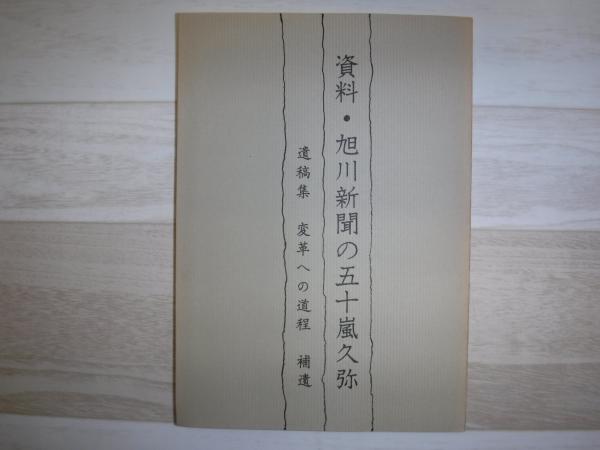 資料・旭川新聞の五十嵐久弥
遺稿集 変革への道程 補遺